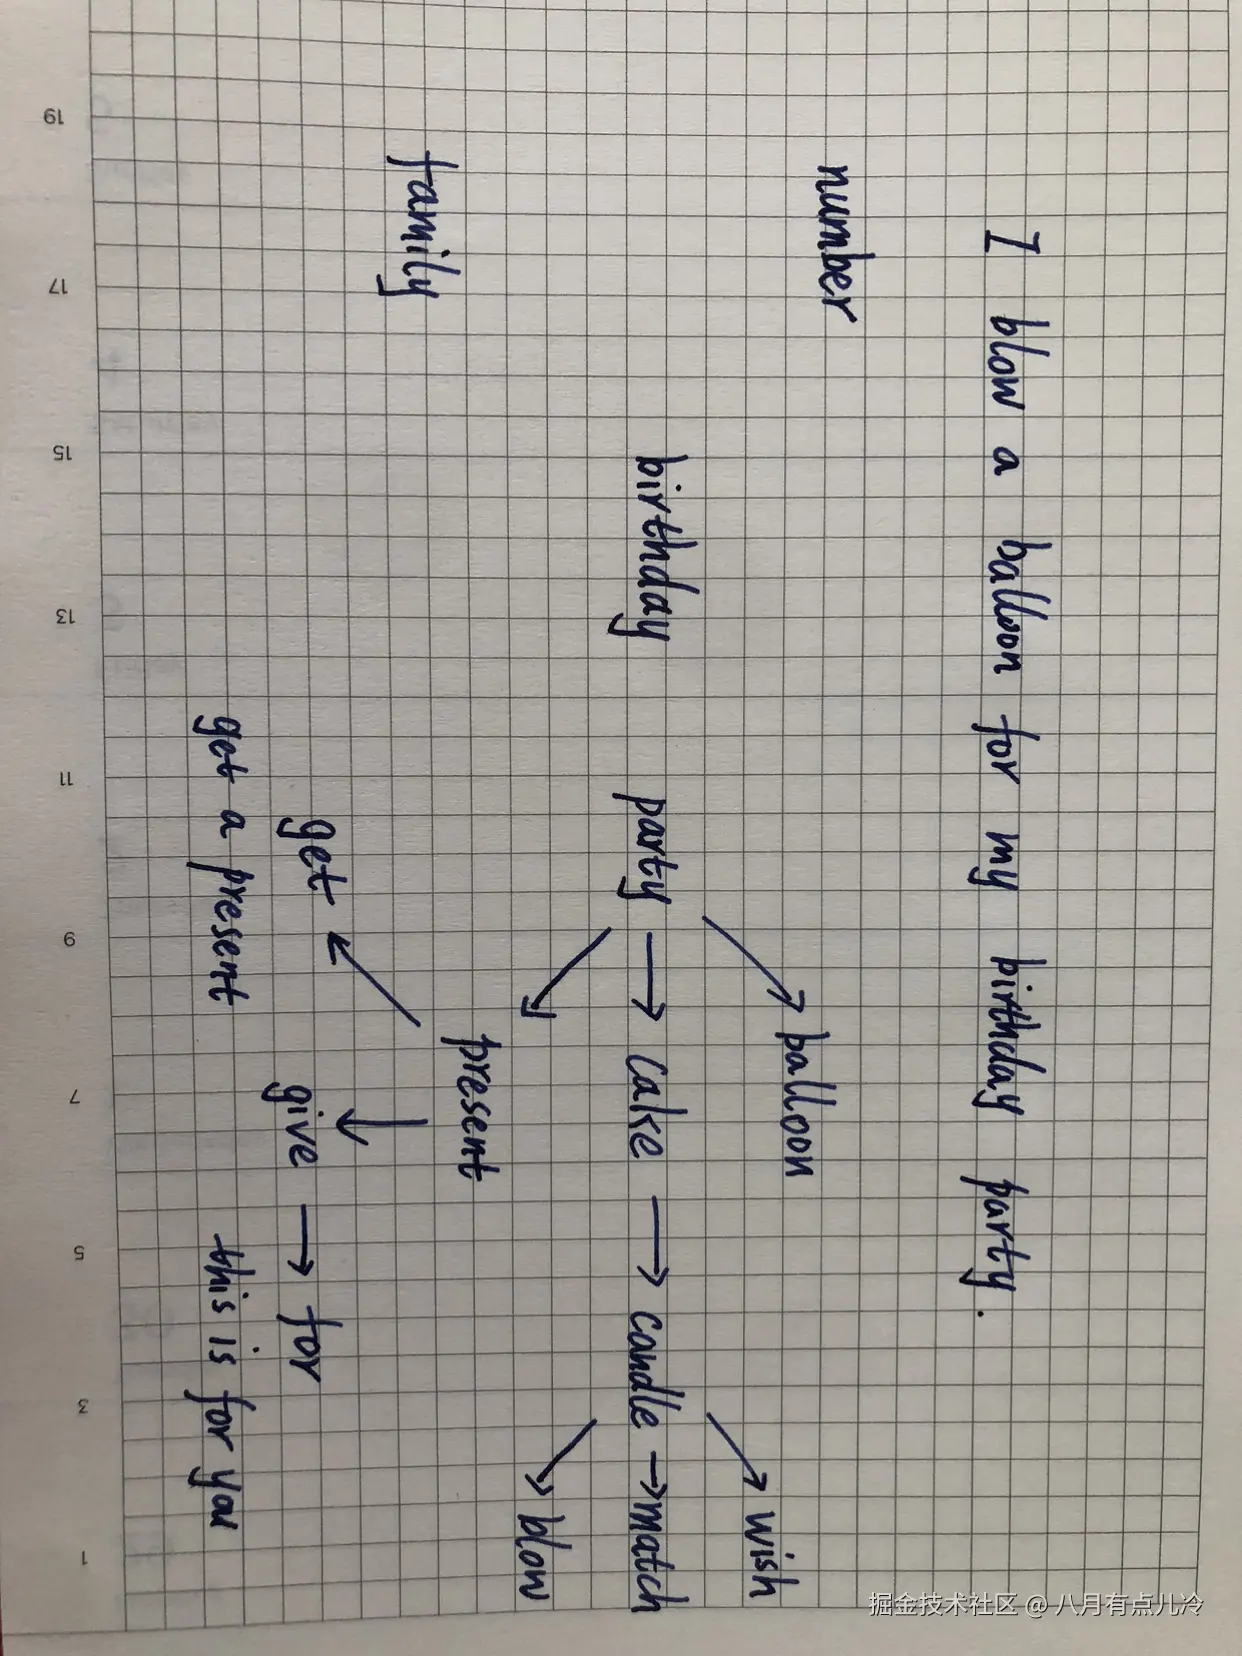 I blow a balloon for my birthday party.
number
balloon
wish
birthday party → cake → candle → match
present
blow
family
get
give → for
get a present
this is for you
19
17
15
13
11
9
7
5
3
1
掘金技术社区 @ 八月有点儿冷